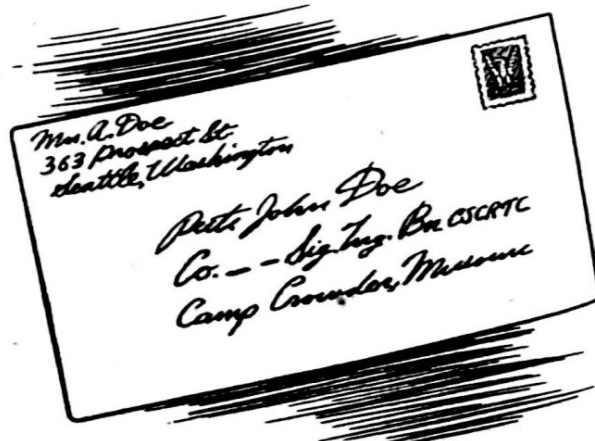 Mrs. A. Doe
363 Prospect St
Seattle, Washington
Pvt. John Doe
Co. — — Sig. Tng. Bn CSCRTC
Camp Crowder, Missouri